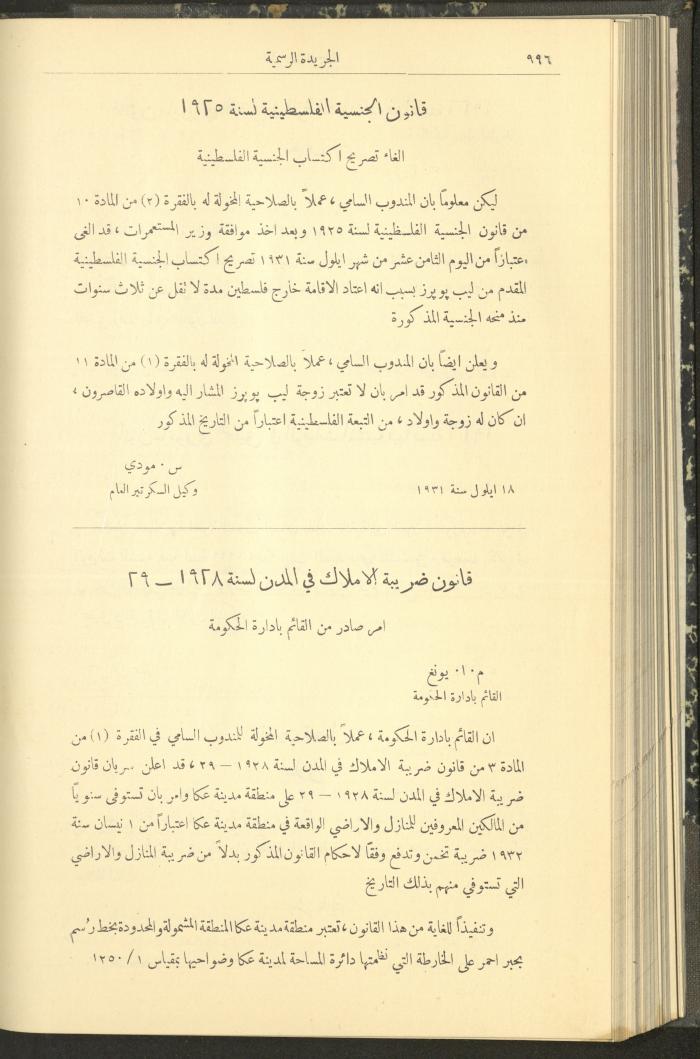 ٩٩٦
الجريدة الرسمية
قانون الجنسية الفلسطينية لسنة ١٩٢٥
الغاء تصريح اكتساب الجنسية الفلسطينية
ليكن معلوماً بان المندوب السامي ، عملاً بالصلاحية المخولة له بالفقرة (٢) من المادة ١٠
من قانون الجنسية الفلسطينية لسنة ١٩٢٥ وبعد اخذ موافقة وزير المستعمرات ، قد الغى
اعتباراً من اليوم الثامن عشر من شهر ايلول سنة ١٩٣١ تصريح اكتساب الجنسية الفلسطينية
المقدم من ليب پوپرز بسبب انه اعتاد الاقامة خارج فلسطين مدة لا تقل عن ثلاث سنوات
منذ منحه الجنسية المذكورة
ويعلن ايضاً بان المندوب السامي ، عملاً بالصلاحية المخولة له بالفقرة (١) من المادة ١١
من القانون المذكور قد امر بان لا تعتبر زوجة ليب پوپرز المشار اليه واولاده القاصرون ،
ان كان له زوجة واولاد ، من التبعة الفلسطينية اعتباراً من التاريخ المذكور
س . مودي
١٨ ايلول سنة ١٩٣١
وكيل السكرتير العام
قانون ضريبة الاملاك في المدن لسنة ١٩٢٨ – ٢٩
امر صادر من القائم بادارة الحكومة
م . ا . يونغ
القائم بادارة الحكومة
ان القائم بادارة الحكومة ، عملاً بالصلاحية المخولة للمندوب السامي في الفقرة (١) من
المادة ٣ من قانون ضريبة الاملاك في المدن لسنة ١٩٢٨ – ٢٩ ، قد اعلن سريان قانون
ضريبة الاملاك في المدن لسنة ١٩٢٨ – ٢٩ على منطقة مدينة عكا وامر بان تستوفى سنوياً
من المالكين المعروفين للمنازل والاراضي الواقعة في منطقة مدينة عكا اعتباراً من ١ نيسان سنة
١٩٣٢ ضريبة تخمن وتدفع وفقاً لاحكام القانون المذكور بدلاً من ضريبة المنازل والاراضي
التي تستوفي منهم بذلك التاريخ
وتنفيذاً للغاية من هذا القانون ، تعتبر منطقة مدينة عكا المنطقة المشمولة والمحدودة بخط رُسم
بحبر احمر على الخارطة التي نظمتها دائرة المساحة لمدينة عكا وضواحيها بمقياس ١/١٢٥٠